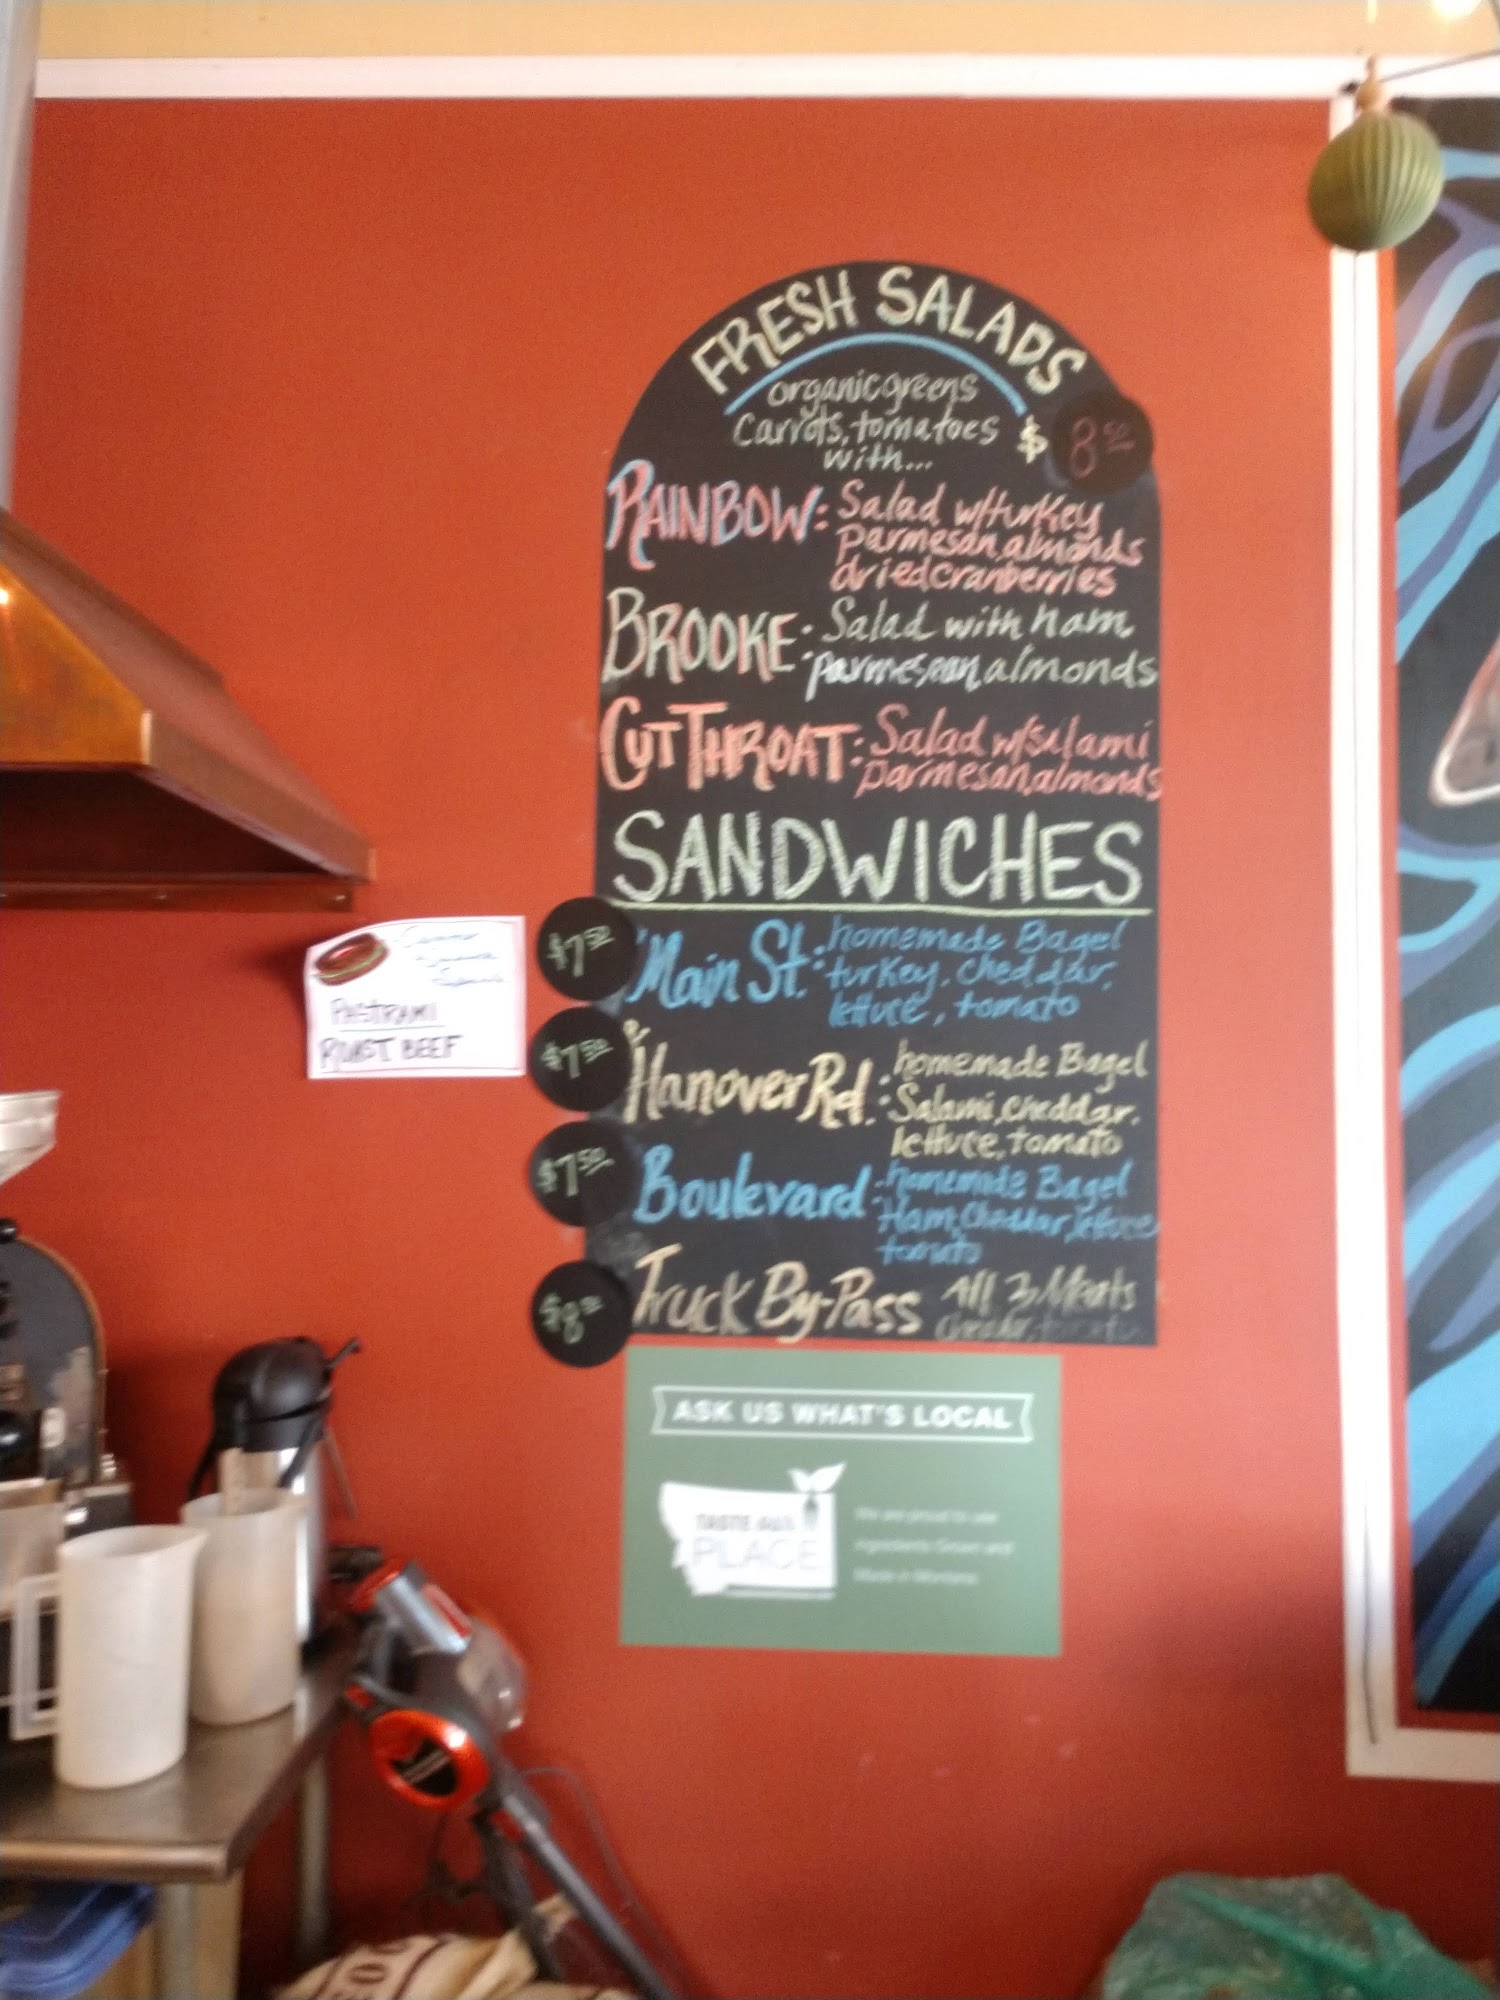 FRESH SALADS
organic greens
Carrots, tomatoes
with...
$ 8 50
RAINBOW: Salad w/turkey
parmesan, almonds
dried cranberries
BROOKE: Salad with ham
parmesan, almonds
CUTTHROAT: Salad w/salami
parmesan, almonds
SANDWICHES
$7 50
Main St.: homemade Bagel
turkey, cheddar,
lettuce, tomato
$7 50
Hanover Rd.: homemade Bagel
Salami, cheddar,
lettuce, tomato
$7 50
Boulevard: homemade Bagel
Ham, Cheddar, lettuce
tomato
$8
Truck By-Pass All 3 Meats
PASTRAMI
ROAST BEEF
ASK US WHAT'S LOCAL
TASTE OUR
PLACE
We are proud to use
ingredients Grown and
Made in Montana